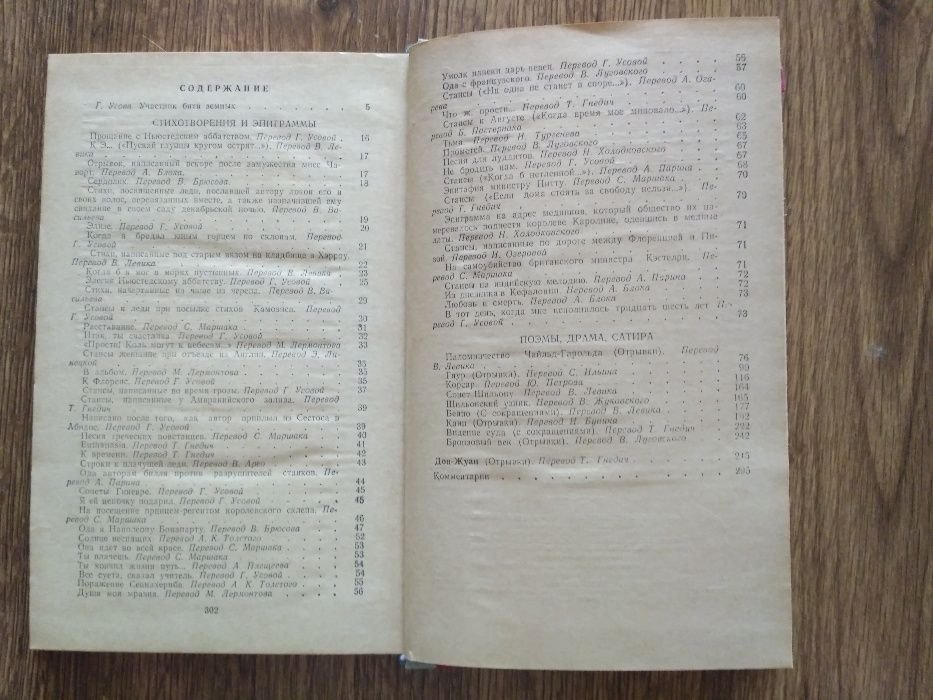 СОДЕРЖАНИЕ
Г. Усова. Участник битв земных . . . 5
СТИХОТВОРЕНИЯ И ЭПИГРАММЫ
Прощание с Ньюстедским аббатством. Перевод Г. Усовой . 16
К Э... («Пускай глупцы кругом острят...»). Перевод В. Ле-
вика . . . 17
Отрывок, написанный вскоре после замужества мисс Ча-
ворт. Перевод А. Блока. . . . 17
Сердолик. Перевод В. Брюсова . . . 18
Стихи, посвященные леди, пославшей автору локон его и
своих волос, перевязанных вместе, а также назначавшей ему
свидание в своем саду декабрьской ночью. Перевод В. Ва-
сильева . . . 19
Элизе. Перевод Г. Усовой . . . 20
Когда я бродил юным горцем по склонам. Перевод
Г. Усовой . . . 21
Стихи, написанные под старым вязом на кладбище в Харроу.
Перевод В. Левика . . . 22
Когда б я мог в морях пустынных. Перевод В. Левика . 23
Элегия Ньюстедскому аббатству. Перевод Г. Усовой . 25
Стихи, начертанные на чаше из черепа. Перевод В. Ва-
сильева . . . 29
Стансы к леди при посылке стихов Камоэнса. Перевод
Г. Усовой . . . 30
Расставание. Перевод С. Маршака . . . 31
Итак, ты счастлива. Перевод Г. Усовой . . . 32
«Прости! Коль могут к небесам...» Перевод М. Лермонтова 33
Стансы женщине при отъезде из Англии. Перевод Э. Ли-
нецкой . . . 33
В альбом. Перевод М. Лермонтова . . . 35
К Флоренс. Перевод Г. Усовой . . . 35
Стансы, написанные во время грозы. Перевод Г. Усовой . 37
Стансы, написанные у Амвракийского залива. Перевод
Т. Гнедич . . . 39
Написано после того, как автор приплыл из Сестоса в
Абидос. Перевод Г. Усовой . . . 39
Песня греческих повстанцев. Перевод С. Маршака . 40
Euthanasia. Перевод Т. Гнедич . . . 41
К времени. Перевод Т. Гнедич . . . 42
Строки к плачущей леди. Перевод В. Арно . . . 43
Ода авторам билля против разрушителей станков. Пе-
ревод А. Парина . . . 44
Сонеты Гиневре. Перевод Г. Усовой . . . 45
Я ей цепочку подарил. Перевод Г. Усовой . . . 45
На посещение принцем-регентом королевского склепа. Пе-
ревод С. Маршака . . . 46
Ода к Наполеону Бонапарту. Перевод В. Брюсова . 47
Солнце неспящих. Перевод А. К. Толстого . . . 52
Она идет во всей красе. Перевод С. Маршака . . . 53
Ты плачешь. Перевод С. Маршака . . . 53
Ты кончил жизни путь... Перевод А. Плещеева . . . 54
Все суета, сказал учитель. Перевод Г. Усовой . . . 54
Поражение Сеннахериба. Перевод А. К. Толстого . . . 55
Душа моя мрачна. Перевод М. Лермонтова . . . 56
302
Умолк навеки царь певец. Перевод Г. Усовой . . . 56
Ода с французского. Перевод В. Луговского . . . 57
Стансы («Ни одна не станет в споре...»). Перевод А. Ога-
рева . . . 60
Что ж, прости... Перевод Т. Гнедич . . . 60
Стансы к Августе («Когда время мое миновало...»). Пе-
ревод Б. Пастернака . . . 62
Тьма. Перевод И. Тургенева . . . 63
Прометей. Перевод В. Луговского . . . 65
Песня для луддитов. Перевод Н. Холодковского . . . 67
Не бродить нам. Перевод Г. Усовой . . . 67
Стансы («Когда б нетленной...»). Перевод А. Парина . 68
Эпитафия министру Питту. Перевод С. Маршака . . . 70
Стансы («Если дома стоять за свободу нельзя...»). Пе-
ревод Т. Гнедич
Эпиграмма на адрес медников, который общество их на-
меревалось поднести королеве Каролине, одевшись в медные
латы. Перевод Н. Холодковского
Стансы, написанные по дороге между Флоренцией и Пи-
зой. Перевод И. Озеровой . . . 71
На самоубийство британского министра Кэстелри. Пе-
ревод С. Маршака . . . 71
Стансы на индийскую мелодию. Перевод А. Парина . 72
Из дневника в Кефалонии. Перевод А. Блока . . . 72
Любовь и смерть. Перевод А. Блока . . . 73
В тот день, когда мне исполнилось тридцать шесть лет Пе-
ревод Г. Усовой . . . 73
ПОЭМЫ, ДРАМА, САТИРА
Паломничество Чайльд-Гарольда (Отрывки). Перевод
В. Левика . . . 76
Гяур (Отрывки). Перевод С. Ильина . . . 99
Корсар. Перевод Ю. Петрова . . . 116
Сонет Шильону. Перевод В. Левика . . . 164
Шильонский узник. Перевод В. Жуковского . . . 165
Беппо (С сокращениями). Перевод В. Левика . . . 177
Каин (Отрывки). Перевод И. Бунина . . . 192
Видение суда (с сокращениями). Перевод Т. Гнедич . 222
Бронзовый век (Отрывки). Перевод В. Луговского . 242
Дон-Жуан (Отрывки). Перевод Т. Гнедич . . . 245
Комментарии . . . 295